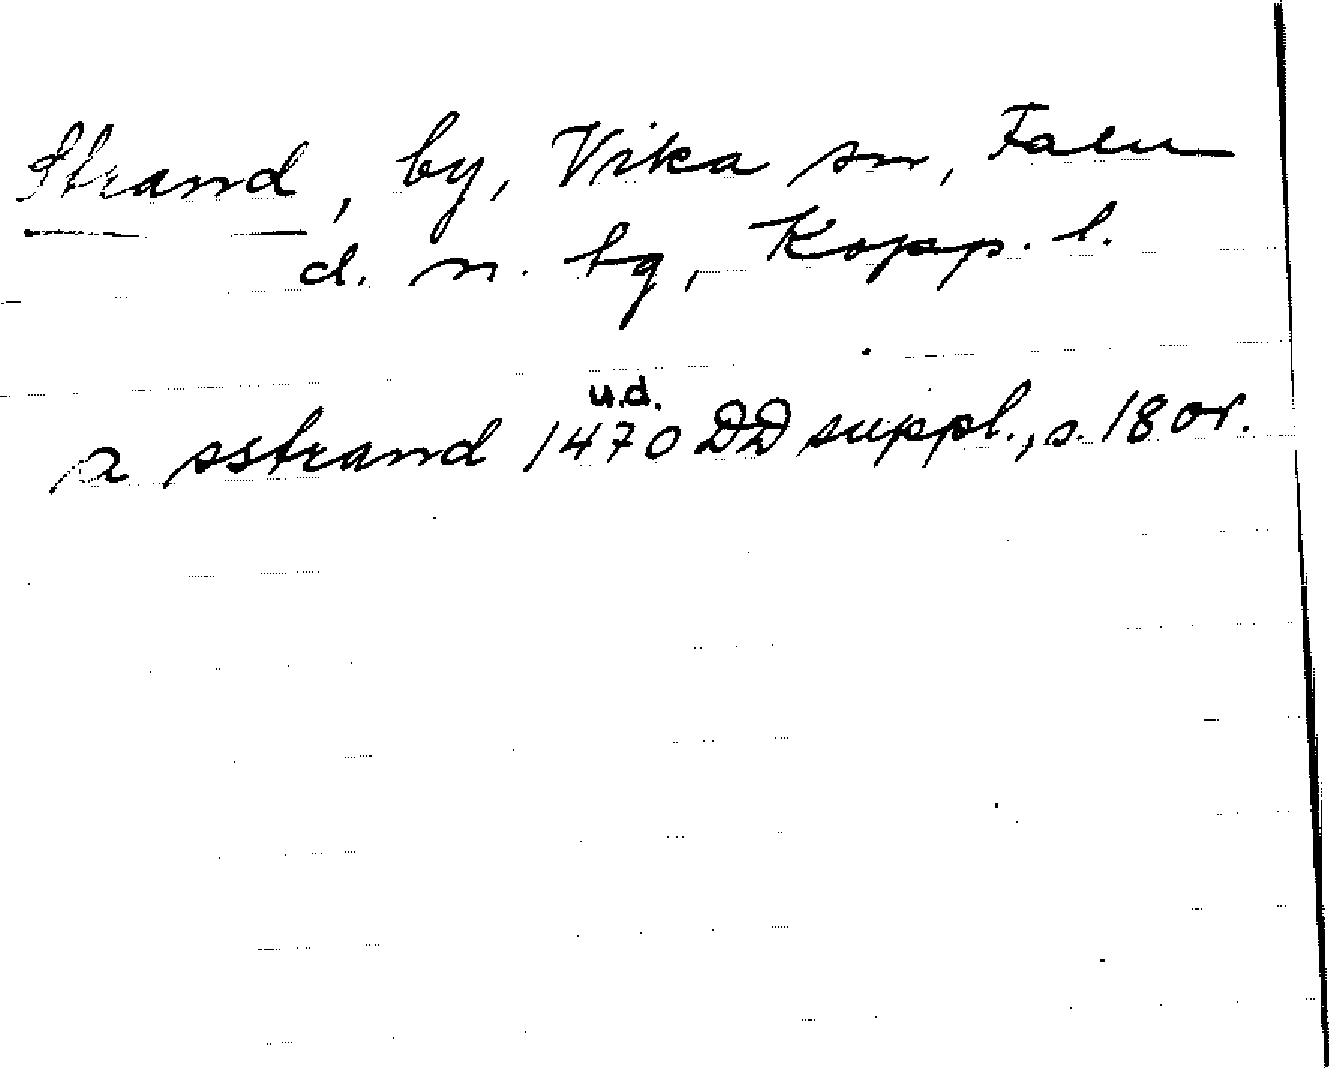 Strand, by, Vika sn, Falu
d. n. bg, Kopp. l.
u.d.
a sstrand 1470 DD suppl., s. 18 or.